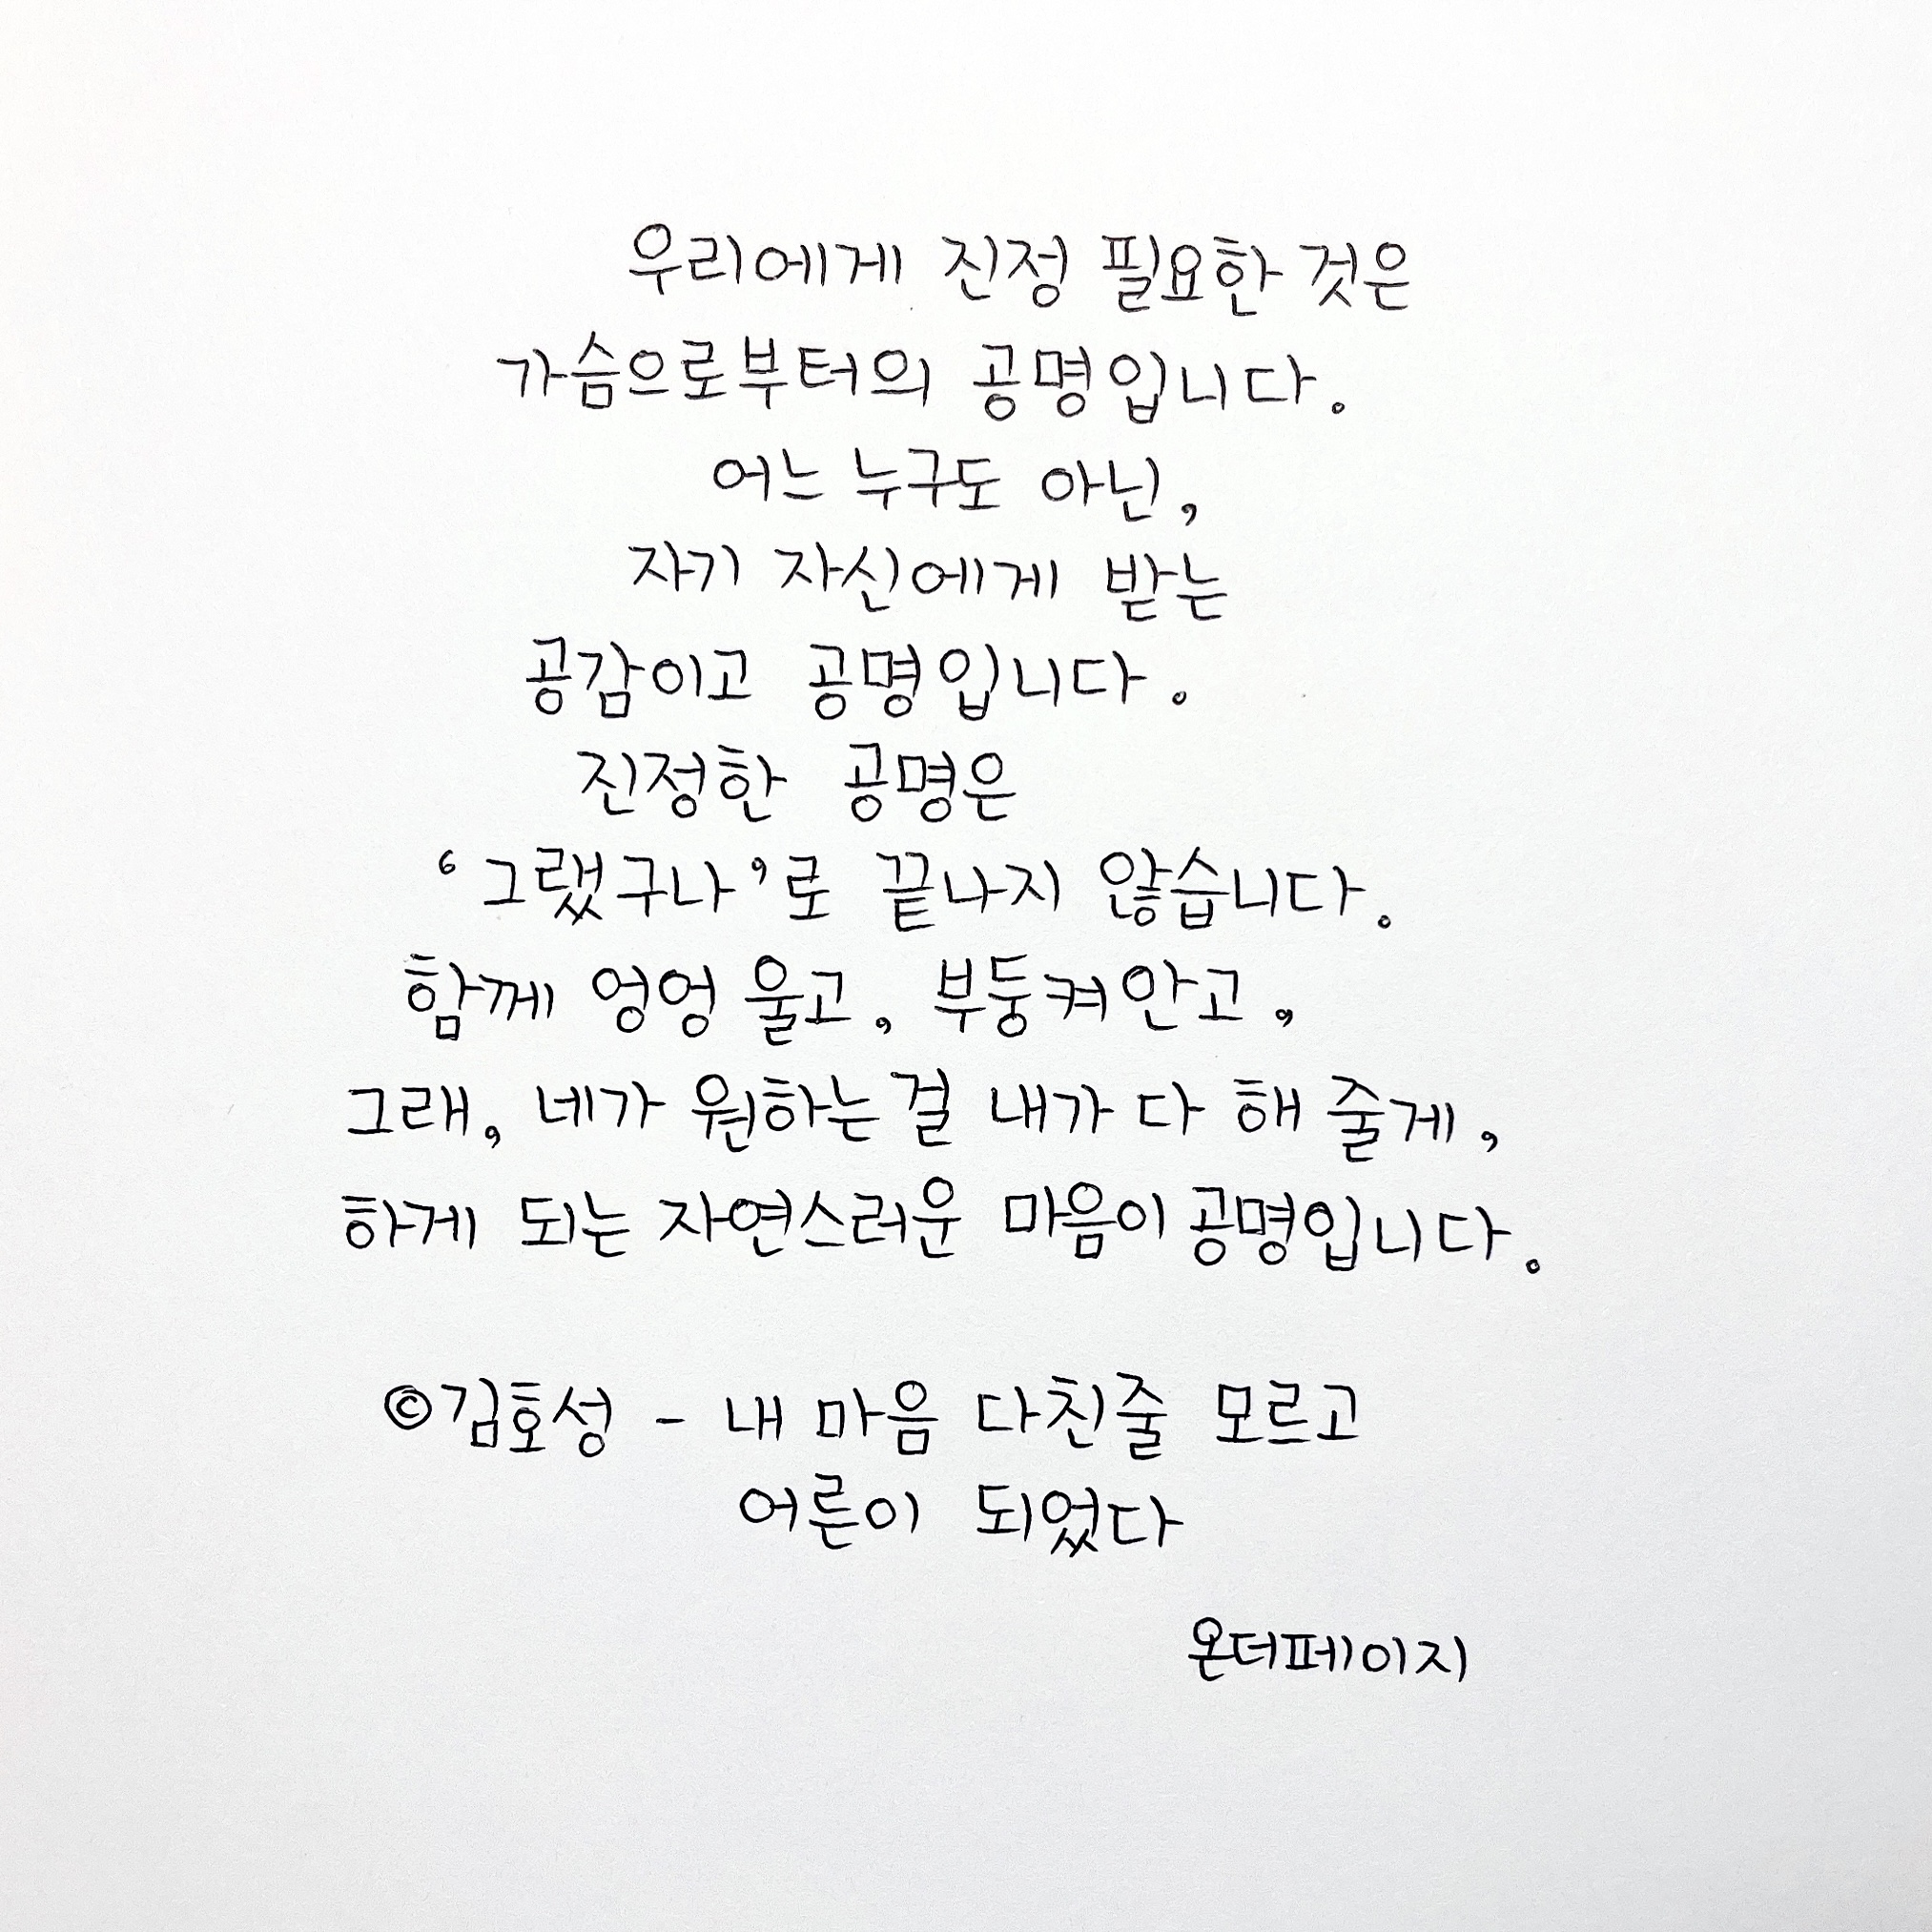 우리에게 진정 필요한 것은
가슴으로부터의 공명입니다.
어느 누구도 아닌,
자기 자신에게 받는
공감이고 공명입니다.
진정한 공명은
‘그랬구나’로 끝나지 않습니다.
함께 엉엉 울고, 부둥켜안고,
그래, 네가 원하는 걸 내가 다 해 줄게,
하게 되는 자연스러운 마음이 공명입니다.
©김호성 - 내 마음 다친줄 모르고
어른이 되었다
온더페이지